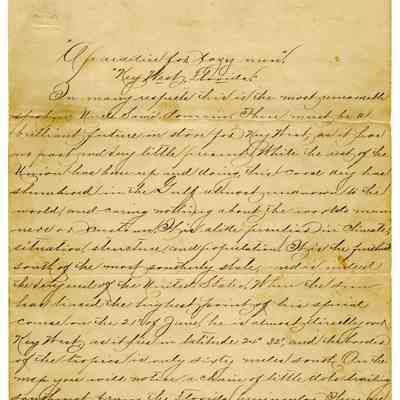 "A paradise for lazy men".
"Key West, Florida."
In many respects this is the most remarkable
spot in Uncle Sam's domain. There must be a
brilliant future in store for Key West, as it has
no past and very little present. While the rest of the
Union has been up and doing, this coral key has
slumbered in the Gulf almost unknown to the
world, and caring nothing about the world's
It is alike peculiar in climate,
situation, structure and population. It is the furthest
south of the most southerly state, and is indeed
the of the United States. When the sun
has reached the highest point of his spiral
course on the 21st of June, he is almost directly over
Key West, as it lies in latitude 24° 32', and the border
of the tropics is only sixty miles south. On the
map you will notice a chain of little dots trailing
from the Florida